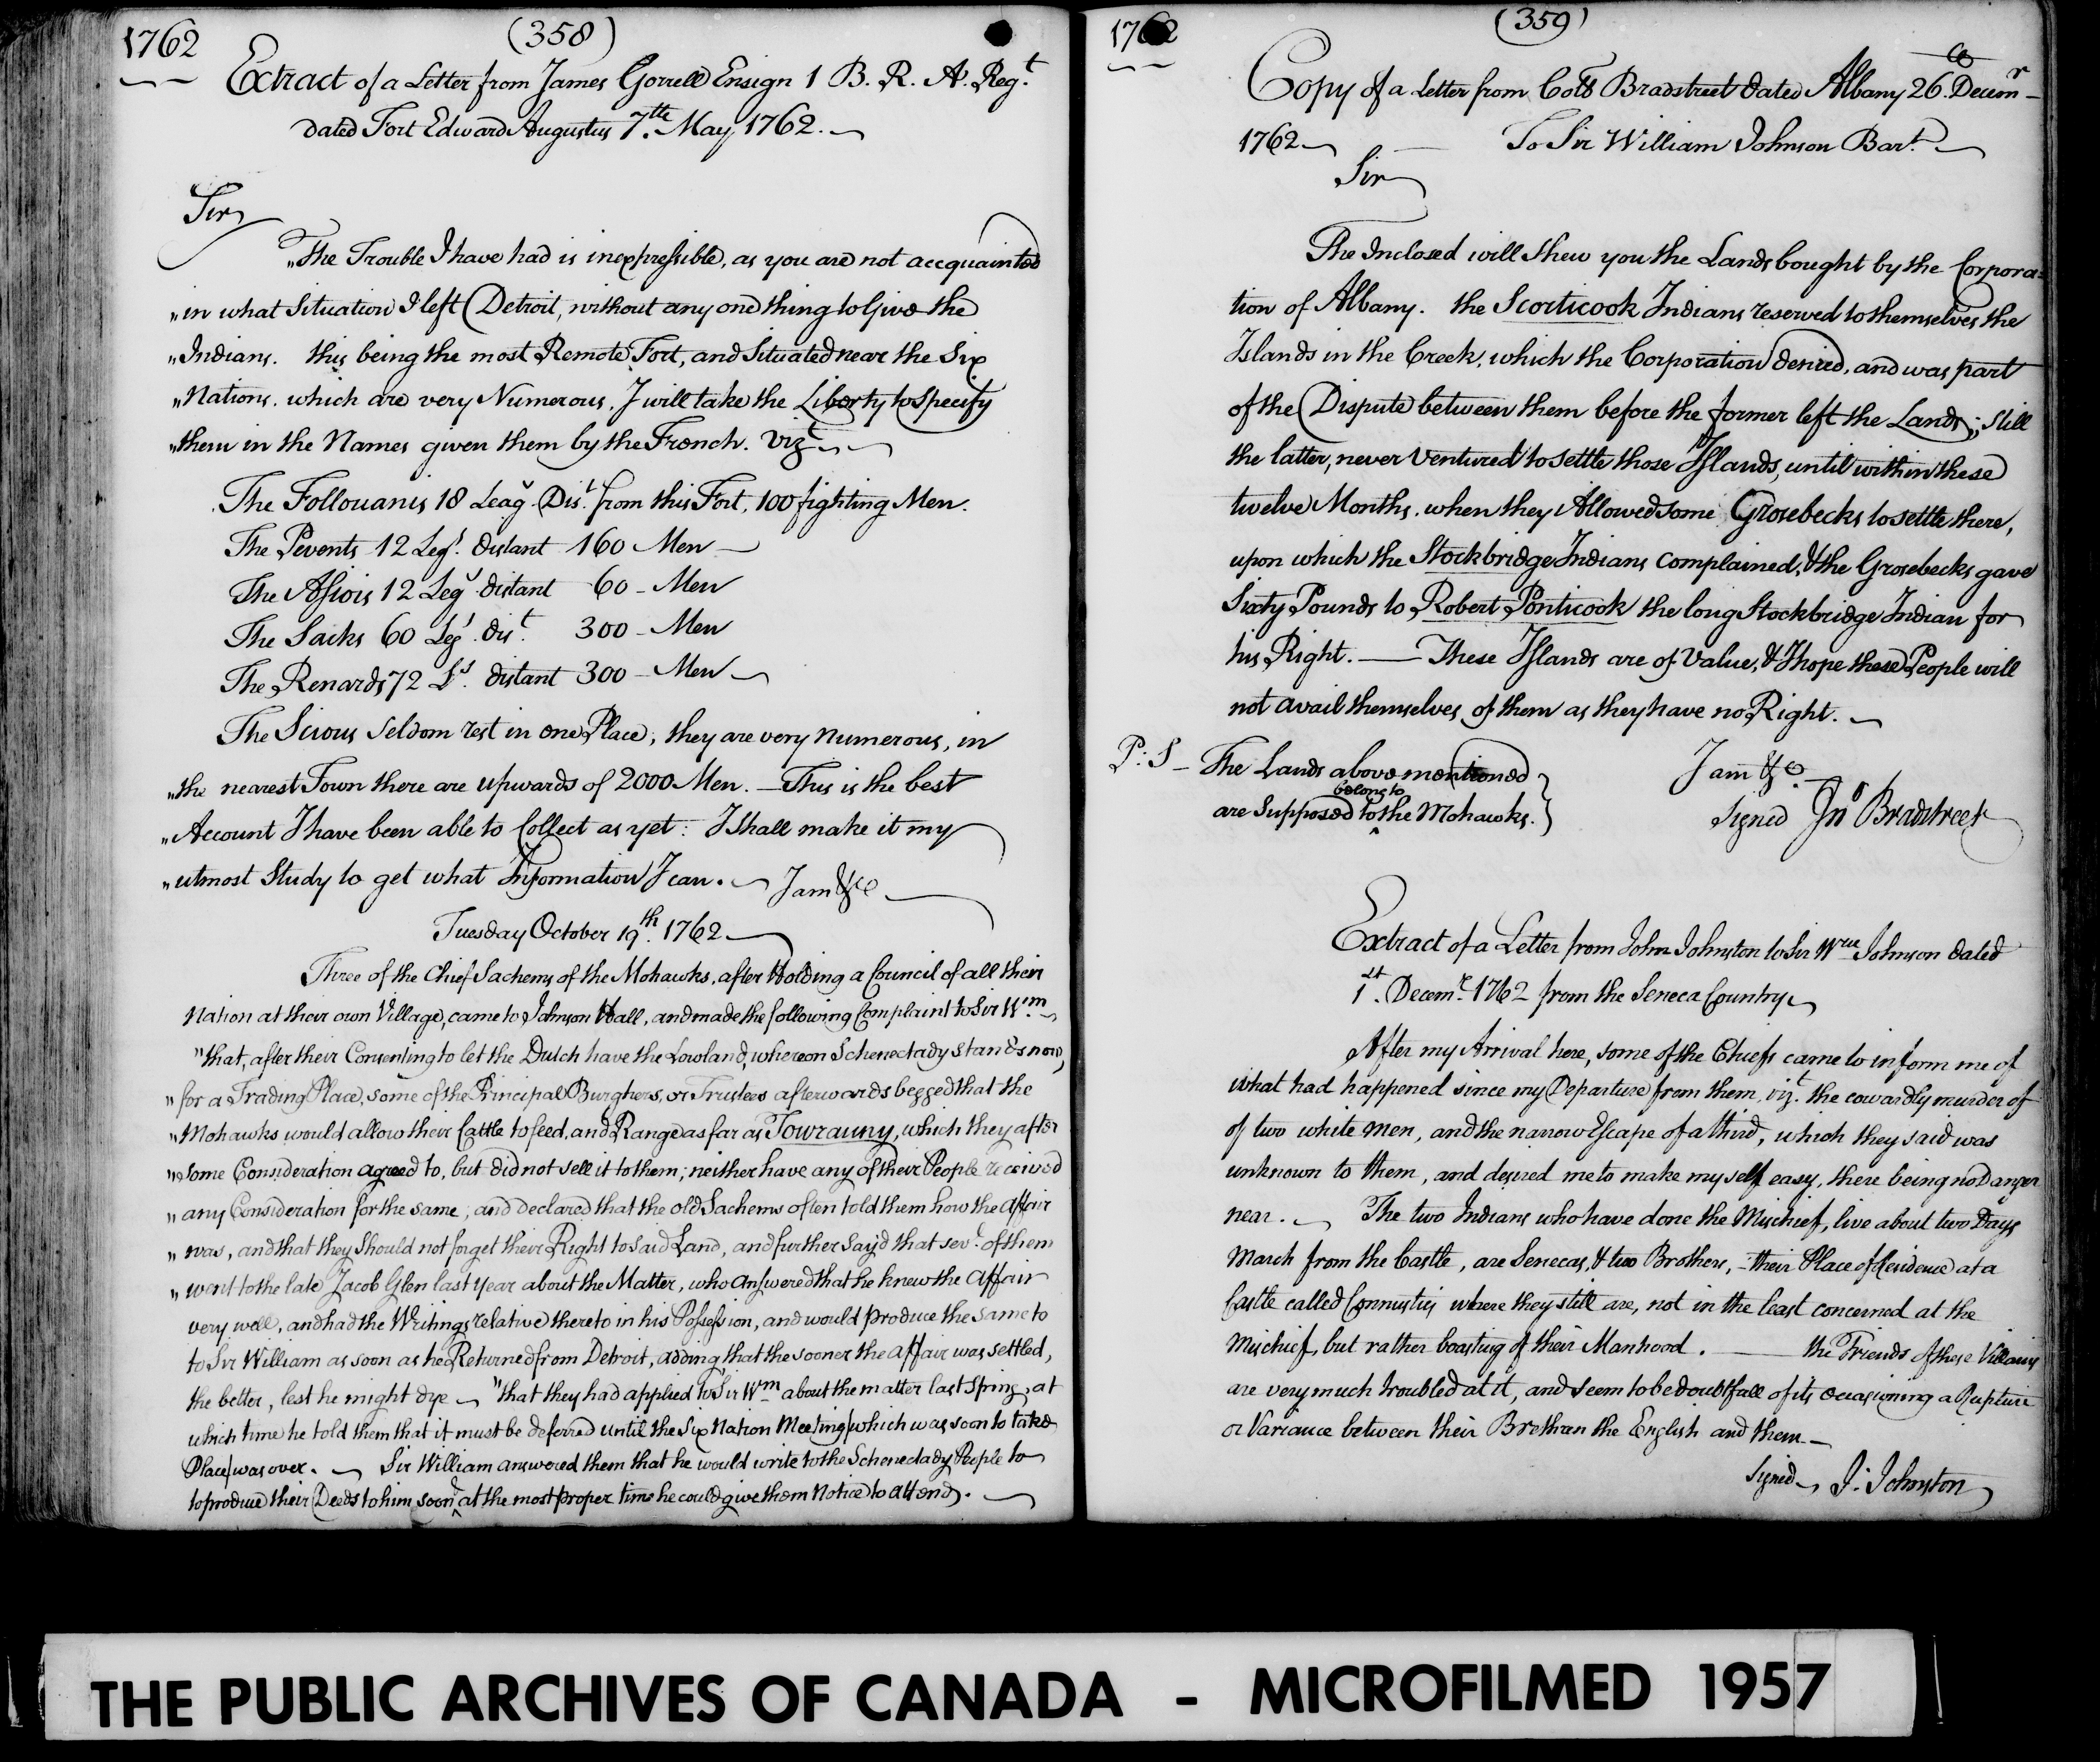 1762
(358)
Extract of a Letter from James Gorrell Ensign 1 B. R. A. Reg.t
dated Fort Edward Augustus 7.th May 1762.
Sir
"The Trouble I have had is inexpressible, as you are not accquainted
"in what Situation I left Detroit, without any one thing to Give the
"Indians. this being the most Remote Fort, and Situated near the Six
"Nations. which are very Numerous. I will take the Liberty to Specify
"them in the Names given them by the French. Vizt
The Follouanis 18 Leag.s Dis.t from this Fort, 100 fighting Men.
The Pevents 12 Leg.s distant 160 Men
The Assiois 12 Leg.s distant 60 - Men
The Saiks 60 Leg.s dis.t 300 - Men
The Renards 72 L.s distant 300 - Men
The Scious Seldom rest in one Place, they are very numerous, in
"the nearest Town there are upwards of 2000 Men. — This is the best
"Account I have been able to Collect as yet: I shall make it my
"utmost Study to get what Information I can. I am &ca
Tuesday October 19.th 1762
Three of the Chief Sachems of the Mohawks, after Holding a Council of all their
Nation at their own Village, came to Johnson Hall, and made the following Complaint to Sir W.m
"that, after their Consenting to let the Dutch have the Lowland, whereon Schenectady stands now,
"for a Trading Place, some of the Principal Burghers, or Trustees afterwards begged that the
"Mohawks would allow their Cattle to feed, and Range as far as Towrauny, which they after
"some Consideration agreed to, but did not sell it to them; neither have any of their People received
"any Consideration for the same; and declared that the old Sachems often told them how the affair
"was, and that they Should not forget their Right to said Land, and further Say'd that sev.l of them
"went to the late Jacob Glen last year about the Matter, who answered that he knew the affair
very well, and had the Writings relative thereto in his Possession, and would produce the same to
to Sir William as soon as he Returned from Detroit, adding that the sooner the affair was settled,
the better, lest he might dye — "that they had applied to Sir Wm about the matter last Spring, at
which time he told them that it must be deferred until the Six Nation Meeting (which was soon to take
Place) was over. — Sir William answered them that he would write to the Schenectady People to
to produce their Deeds to him soon & at the most proper time he could give them Notice to attend.
1762
(359)
Copy of a Letter from Coll Bradstreet dated Albany 26. Decemr
1762 — To Sir William Johnson Bar.t
Sir
The Inclosed will Shew you the Lands bought by the Corpora=
tion of Albany. the Scorticook Indians reserved to themselves the
Islands in the Creek, which the Corporation denied, and was part
of the Dispute between them before the former left the Lands; Still
the latter, never Ventured to settle those Islands, until within these
twelve Months. when they Allowed some Grosebecks to settle there,
upon which the Stockbridge Indians complained, & the Grosebecks gave
Sixty Pounds to Robert Ponticook the long Stockbridge Indian for
his Right. — These Islands are of Value, & I hope these People will
not avail themselves of them as they have no Right.
P: S - The Lands above mentioned
belong to
are Supposed to the Mohawks.
I am &c
Signed Jno Bradstreet
Extract of a Letter from John Johnston to Sir Wm Johnson dated
1.st Decem.r 1762 from the Seneca Country
After my Arrival here, some of the Chiefs came to inform me of
what had happened since my Departure from them, viz.t the cowardly murder of
of two white men, and the narrow Escape of a third, which they said was
unknown to them, and desired me to make my self easy, there being no Danger
near. The two Indians who have done the Mischief, live about two Days
March from the Castle, are Senecas, & two Brothers, - their Place of Residence at a
Castle called Connustis where they still are, not in the least concerned at the
Mischief, but rather boasting of their Manhood. — the Friends of these Villains
are very much troubled at it, and Seem to be doubtfull of its occasioning a Rupture
or Variance between their Brethren the English and them
Signed J: Johnston
THE PUBLIC ARCHIVES OF CANADA - MICROFILMED 1957